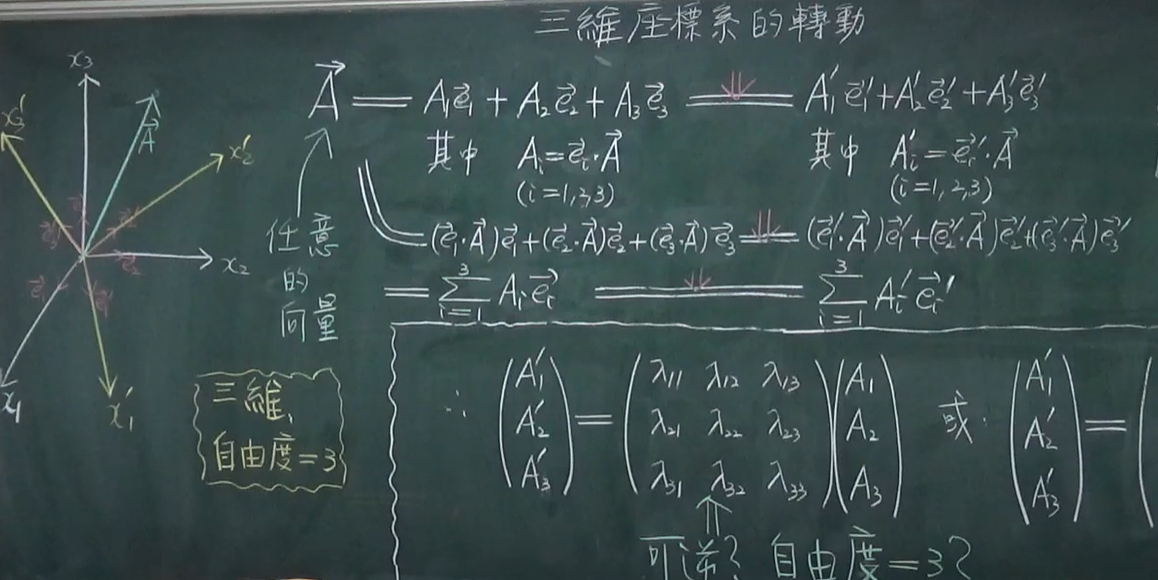 三維座標系的轉動
x₃
x₃′
A⃗
x₂′
x₂
x₁
x₁′
e⃗₂
A⃗ = A₁e⃗₁ + A₂e⃗₂ + A₃e⃗₃ = A₁′e⃗₁′ + A₂′e⃗₂′ + A₃′e⃗₃′
其中 Aᵢ = e⃗ᵢ·A⃗
(i=1,2,3)
其中 Aᵢ′ = e⃗ᵢ′·A⃗
(i=1,2,3)
任意
的
向量
(e⃗₁·A⃗)e⃗₁ + (e⃗₂·A⃗)e⃗₂ + (e⃗₃·A⃗)e⃗₃ = (e⃗₁′·A⃗)e⃗₁′ + (e⃗₂′·A⃗)e⃗₂′ + (e⃗₃′·A⃗)e⃗₃′
= ∑³ᵢ₌₁ Aᵢe⃗ᵢ = ∑³ᵢ₌₁ Aᵢ′e⃗ᵢ′
三維、
自由度=3
A₁′ λ₁₁ λ₁₂ λ₁₃ A₁
∴ (A₂′) = (λ₂₁ λ₂₂ λ₂₃)(A₂)
A₃′ λ₃₁ λ₃₂ λ₃₃ A₃
A₁′
或 (A₂′) = (
A₃′
可逆? 自由度=3?